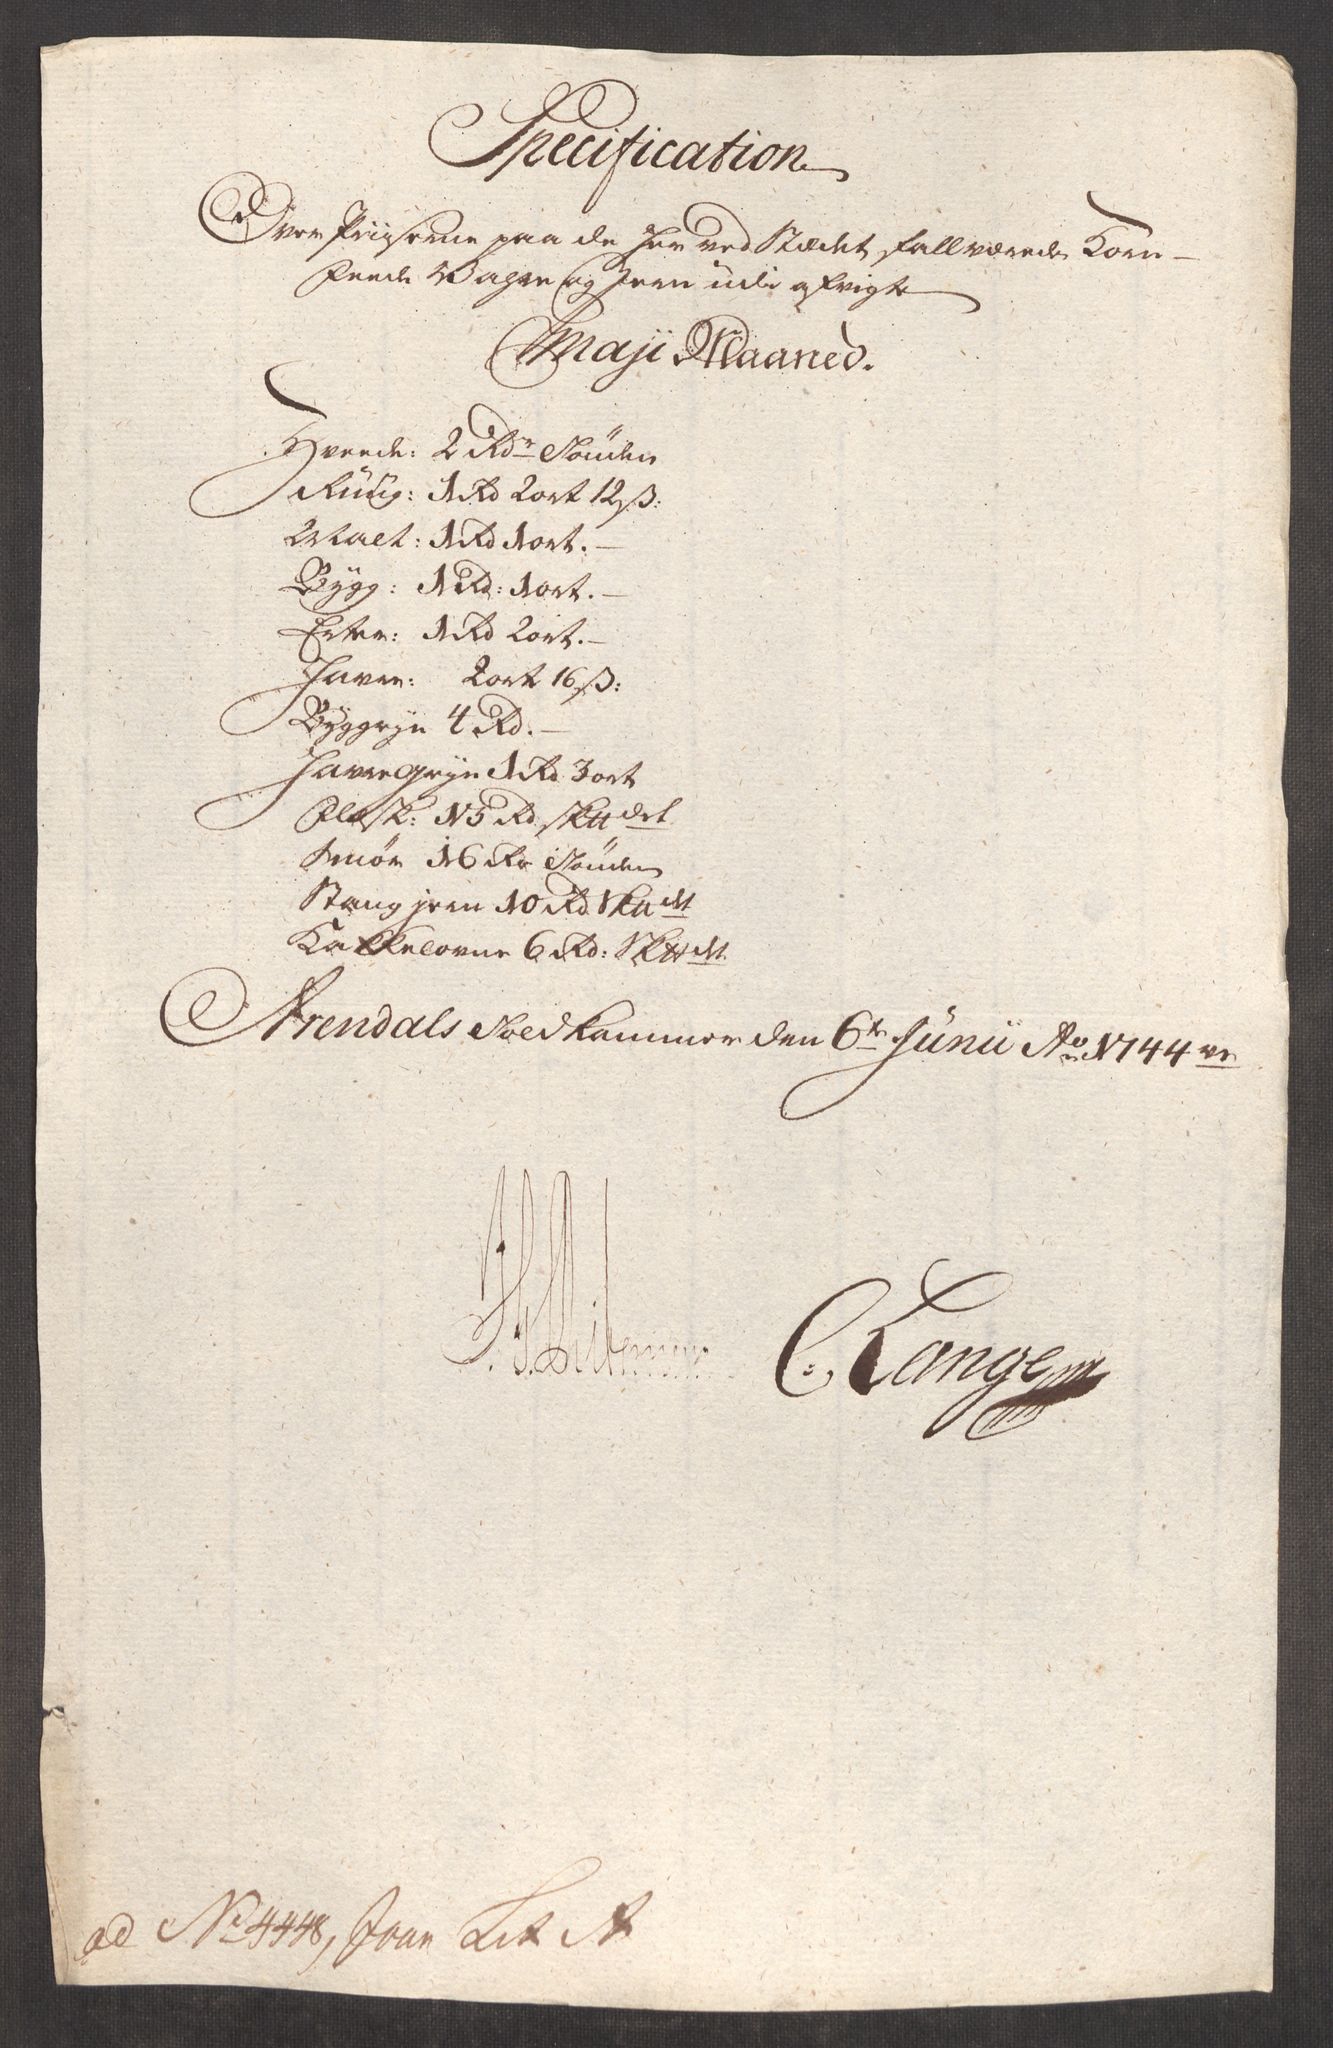 Specification
Over Priiserne paa de her ved Stædet fallværende Korn-
Feede Wahre og Jern udi afvigte
Maji Maaned.
Hveede: 2 Rdr Tønden
Rüüg: 1 Rd 2 ort 12 ß:
Malt: 1 Rd 1 ort.-
Bÿgg: 1 Rd: 1 ort.-
Erter: 1 Rd 2 ort.-
Haver: 2 ort 16 ß:
Bÿggrÿn 4 Rd.-
Havregrÿn 1 Rd 3 ort
Flesk: 15 Rd sk℔det
Smør 16 Rd Tønden
Stang jern 10 Rd Sk℔det
Kakkelovne 6 Rd: Sk℔det
Arendals Toldkammer den 6te Junii Ao 1744
C. Lange
ad No 4448, Lit A